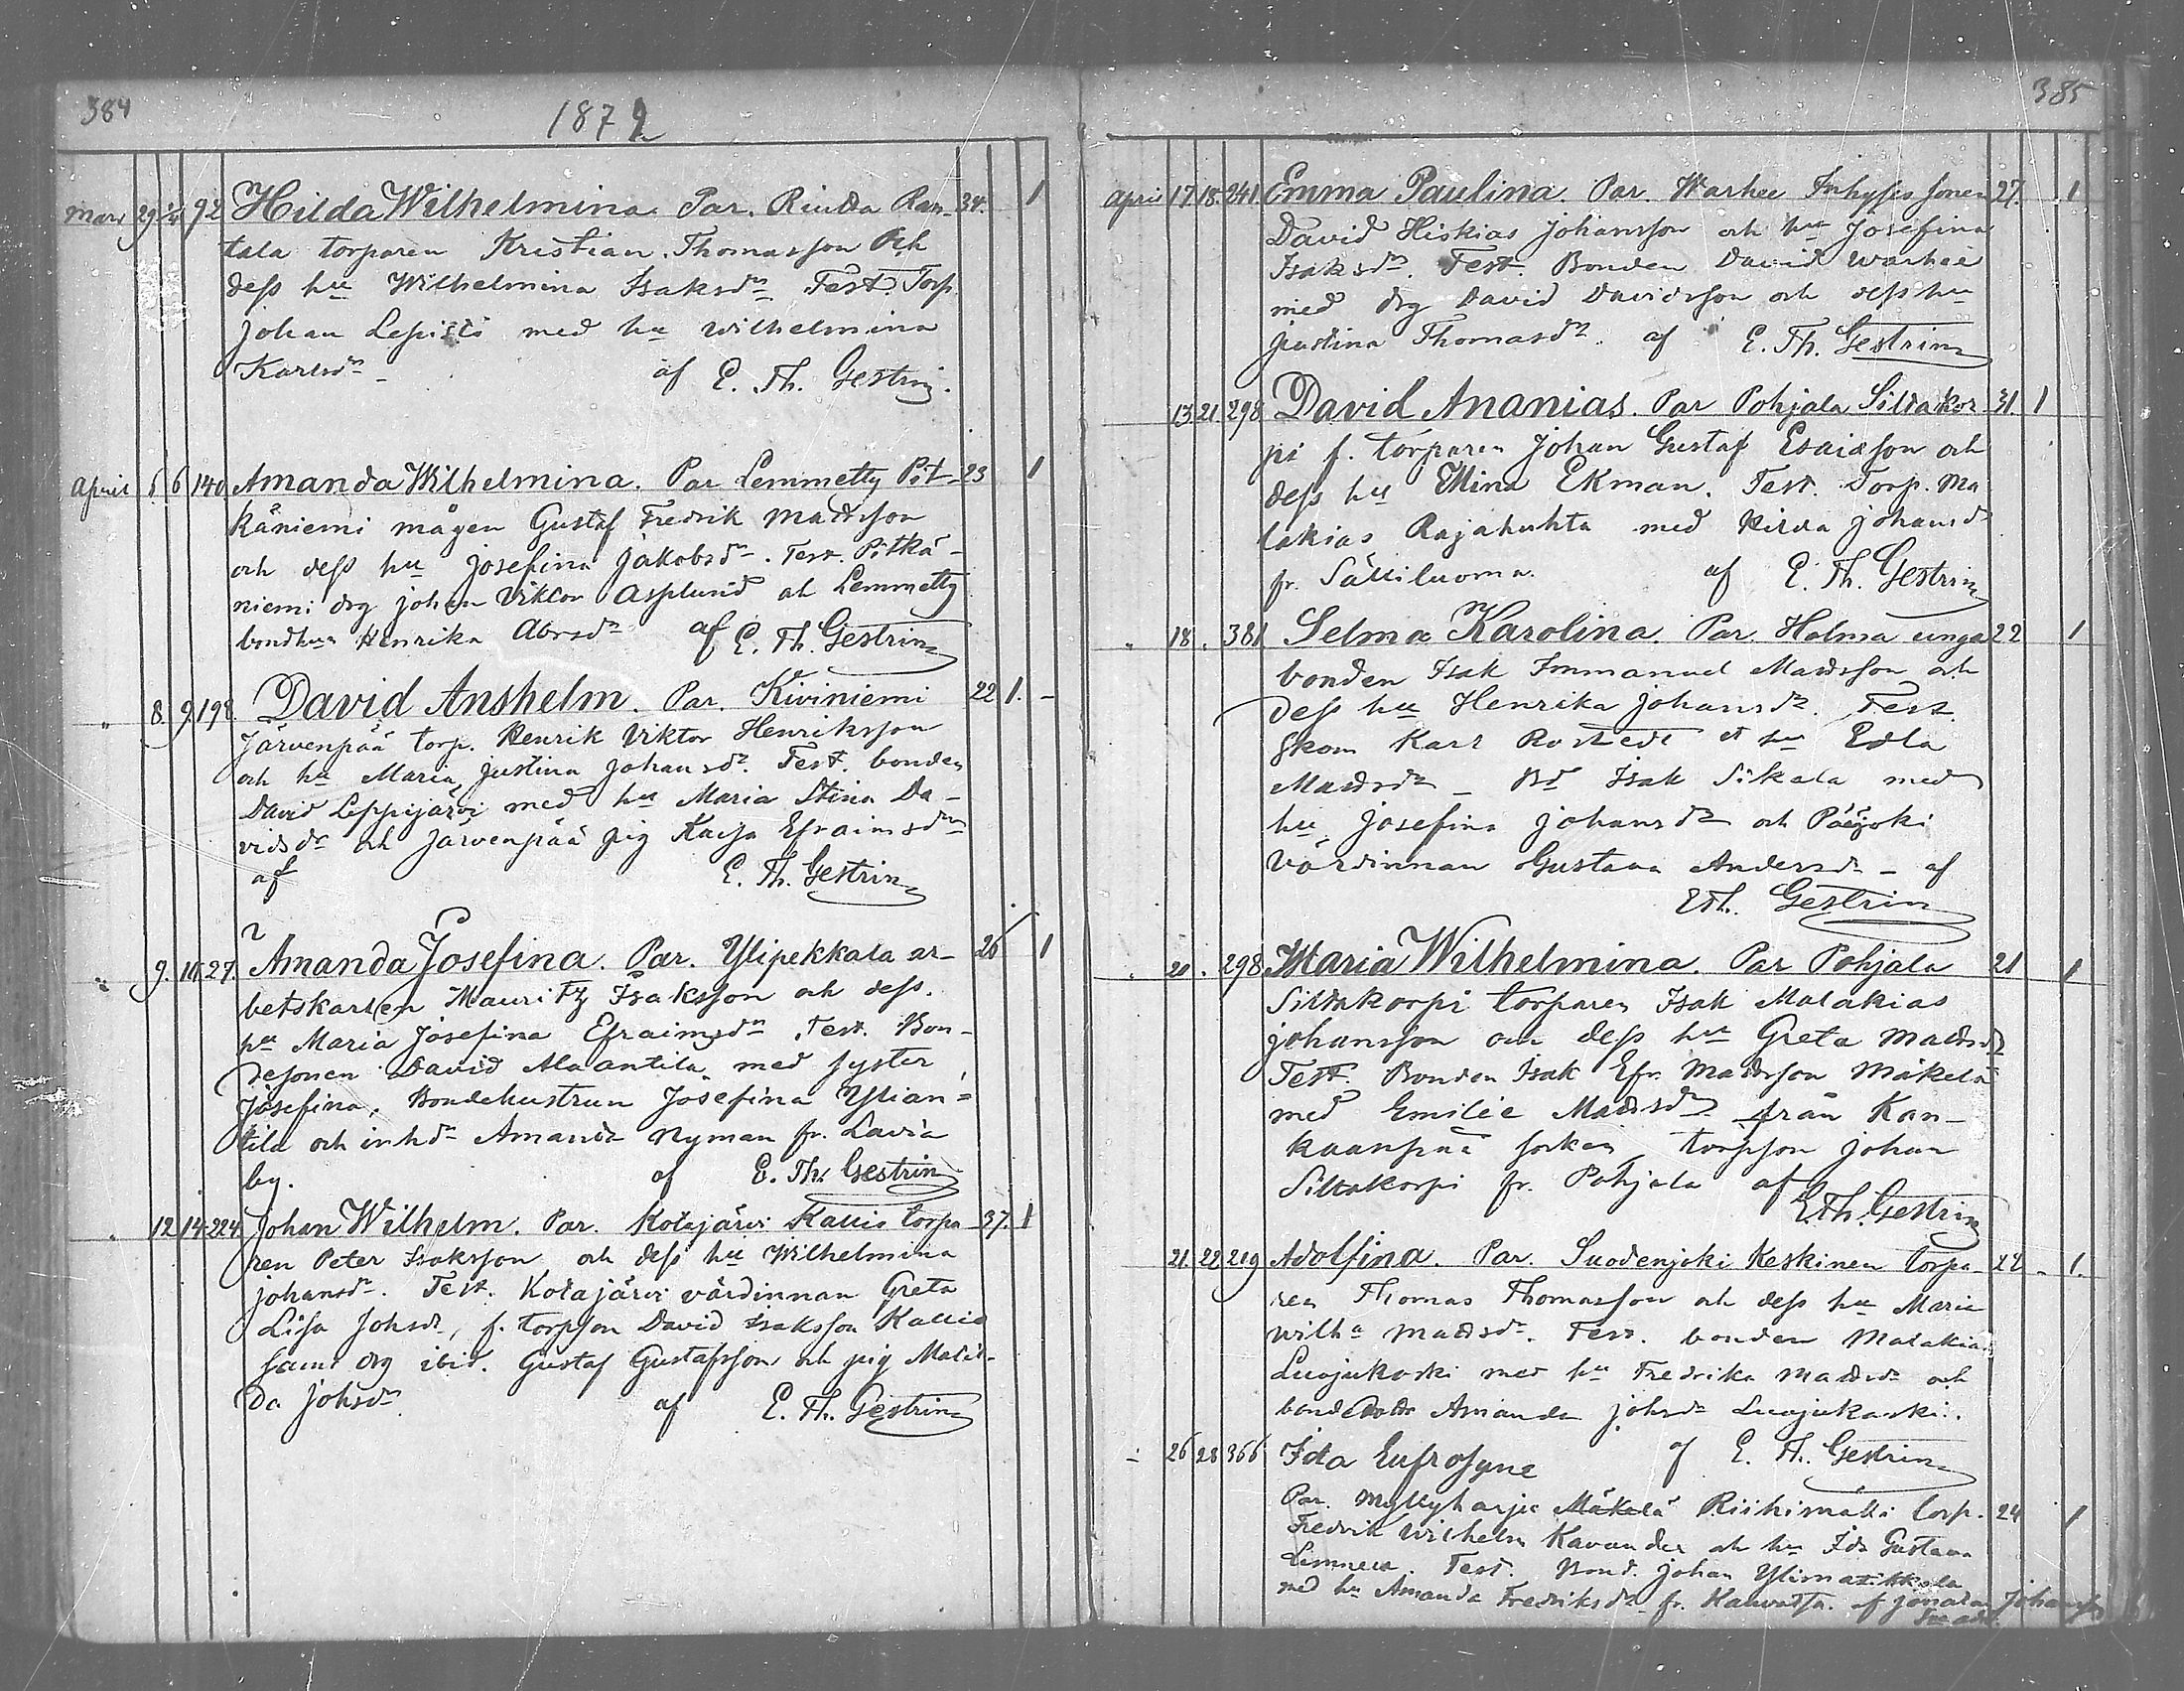 384
1879
Mars 29 1/4 92 Hilda Wilhelmina. Par. Rindta Ran- 34. 1
tala torparen Kristian Thomasson och
dess hu Wilhelmina Isaksdr Test. Torp.
Johan Lepistö med hu Wilhelmina
Karlsdr - af E. Th. Gestrin.
April 5 6 140 Amanda Wilhelmina. Par Lemmetty Pit- 23 1
käniemi mågen Gustaf Fredrik Mattsson
och dess hu Josefina Jakobsdr. Test. Pitkä-
niemi drg Johan Viktor Asplund och Lemmetty
bondhun Henrika Abrsdr af E. Th. Gestrin
" 8. 9. 198. David Anshelm. Par. Kiviniemi 22 1. -
Järvenpää torp. Henrik Viktor Henriksson
och hu Maria Justina Johansdr. Test. bonden
David Leppijärvi med hu Maria Stina Da-
vidsdr och Järvenpää pig Kaisa Efraimsdr
af E. Th. Gestrin
" 9. 10. 27. Amanda Josefina. Par. Ylipekkala ar- 26 1
betskarlen Mauritz Isaksson och dess.
hu Maria Josefina Efraimsdr. Test. Bon-
desonen David Alaantila med syster
Josefina, Bondehustrun Josefina Ylian=
tila och inhdr Amanda Nyman fr. Lavia
by. af E. Th. Gestrin
" 12 14. 224. Johan Wilhelm. Par. Kotajärvi Kallis torpa- 37. 1
ren Peter Isaksson och dess hu Wilhelmina
Johansdr. Test. Kotajärvi värdinnan Greta
Lisa Johsdr, f. torpson David Isaksson Kallis
samt drg ibid. Gustaf Gustafsson och pig Matil-
da Johsdr. af E. Th. Gestrin
385
April 17. 18. 241. Emma Paulina. Par. Warhee Inhyses sonen 27. 1
David Hiskias Johansson och hu Josefina
Isaksdr. Test. Bonden David Warhee
med drg David Davidsson och dess hu
Justina Thomasdr. af E. Th. Gestrin
13. 21. 298 David Ananias. Par Pohjala Siltakor- 31. 1
pi f. torparen Johan Gustaf Esaiasson och
dess hu Mina Ekman. Test. Torp. Ma
lakias Rajahuhta med Hilda Johansd
fr. Sälliluoma. af E. Th. Gestrin
" 18 . 381 Selma Karolina. Par. Holma unga 22 1
bonden Isak Immanuel Mattsson och
dess hu Henrika Johansdr. Test.
Skom Karl Rostedt et hu Edla
Mattsdr - Bd Isak Sikala med
hu Josefina Johansdr och Pääjoki
Värdinnan Gustava Andersdr - af
E Th. Gestrin
" 20 . 298 Maria Wilhelmina. Par Pohjala 21 1
Siltakorpi torparen Isak Malakias
Johansson och dess hu Greta Mattsdr
Test. Bonden Isak Efr. Mattsson Mäkelä
med Emilie Mattsdr från Kan-
kaanpää socken torpson Johan
Siltakorpi fr. Pohjala af
E. Th. Gestrin
21. 22 219 Adolfina. Par. Suodenjoki Keskinen torpa- 22 - 1.
ren Thomas Thomasson och dess hu Maria
Wilha Mattsdr. Test. bonden Malakias
Luojukoski med hu Fredrika Mattsdr och
bondedottr Amanda Johsdr Luojukoski.
" 26 28 366 Ida Eufrosyne af E. Th. Gestrin
Par. Myllyharju Mäkelä Riihimäki torp. 24 1
Fredrik Wilhelm Kavander och hu Ida Gustava
Test. Bond. Johan Ylimattila
med hu Amanda Fredriksdr fr. Kauvatsa. af Jonatan Johansson